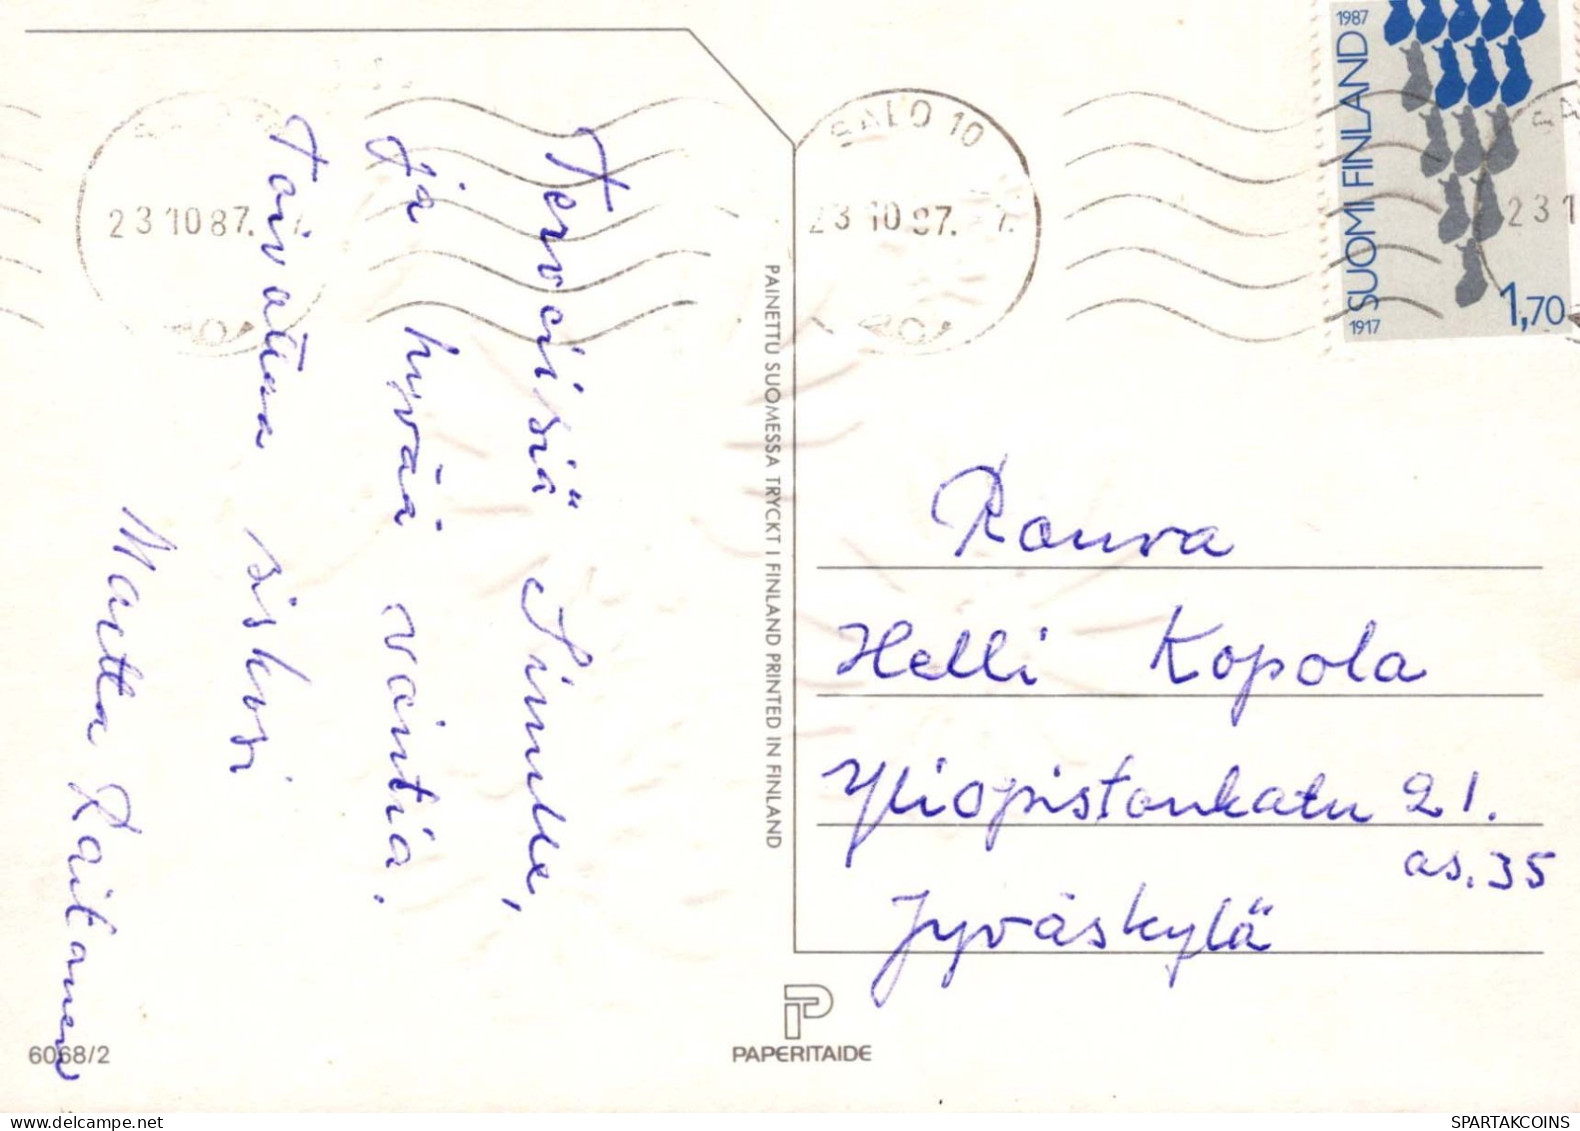 Terveisiä Sinulle,
ja hyvää vointia.
Toivottaa siskosi
Martta Laitanen
PAINETTU SUOMESSA TRYCKT I FINLAND PRINTED IN FINLAND
SALO 10
23 10 87. 7.
23 10 87. 7.
1987
SUOMI FINLAND
1917
1,70
23 1
Rouva
Helli Kopola
Yliopistonkatu 21.
as. 35
Jyväskylä
6068/2
PAPERITAIDE
SPARTAKCOINS